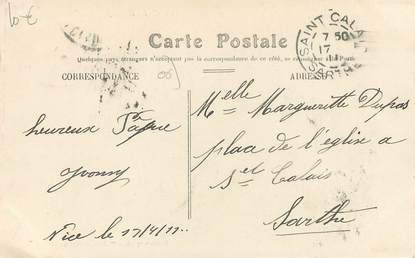 10 €
Carte Postale
Quelques pays étrangers n'acceptant pas la correspondance de ce côté, se renseigner à la Poste
CORRESPONDANCE
ADRESSE
SAINT CALAIS
7 50
17
SARTHE
heureux
Yvonny
Nice le 17/4/11
Melle Marguerite Dupas
place de l'église a
St Calais
Sarthe